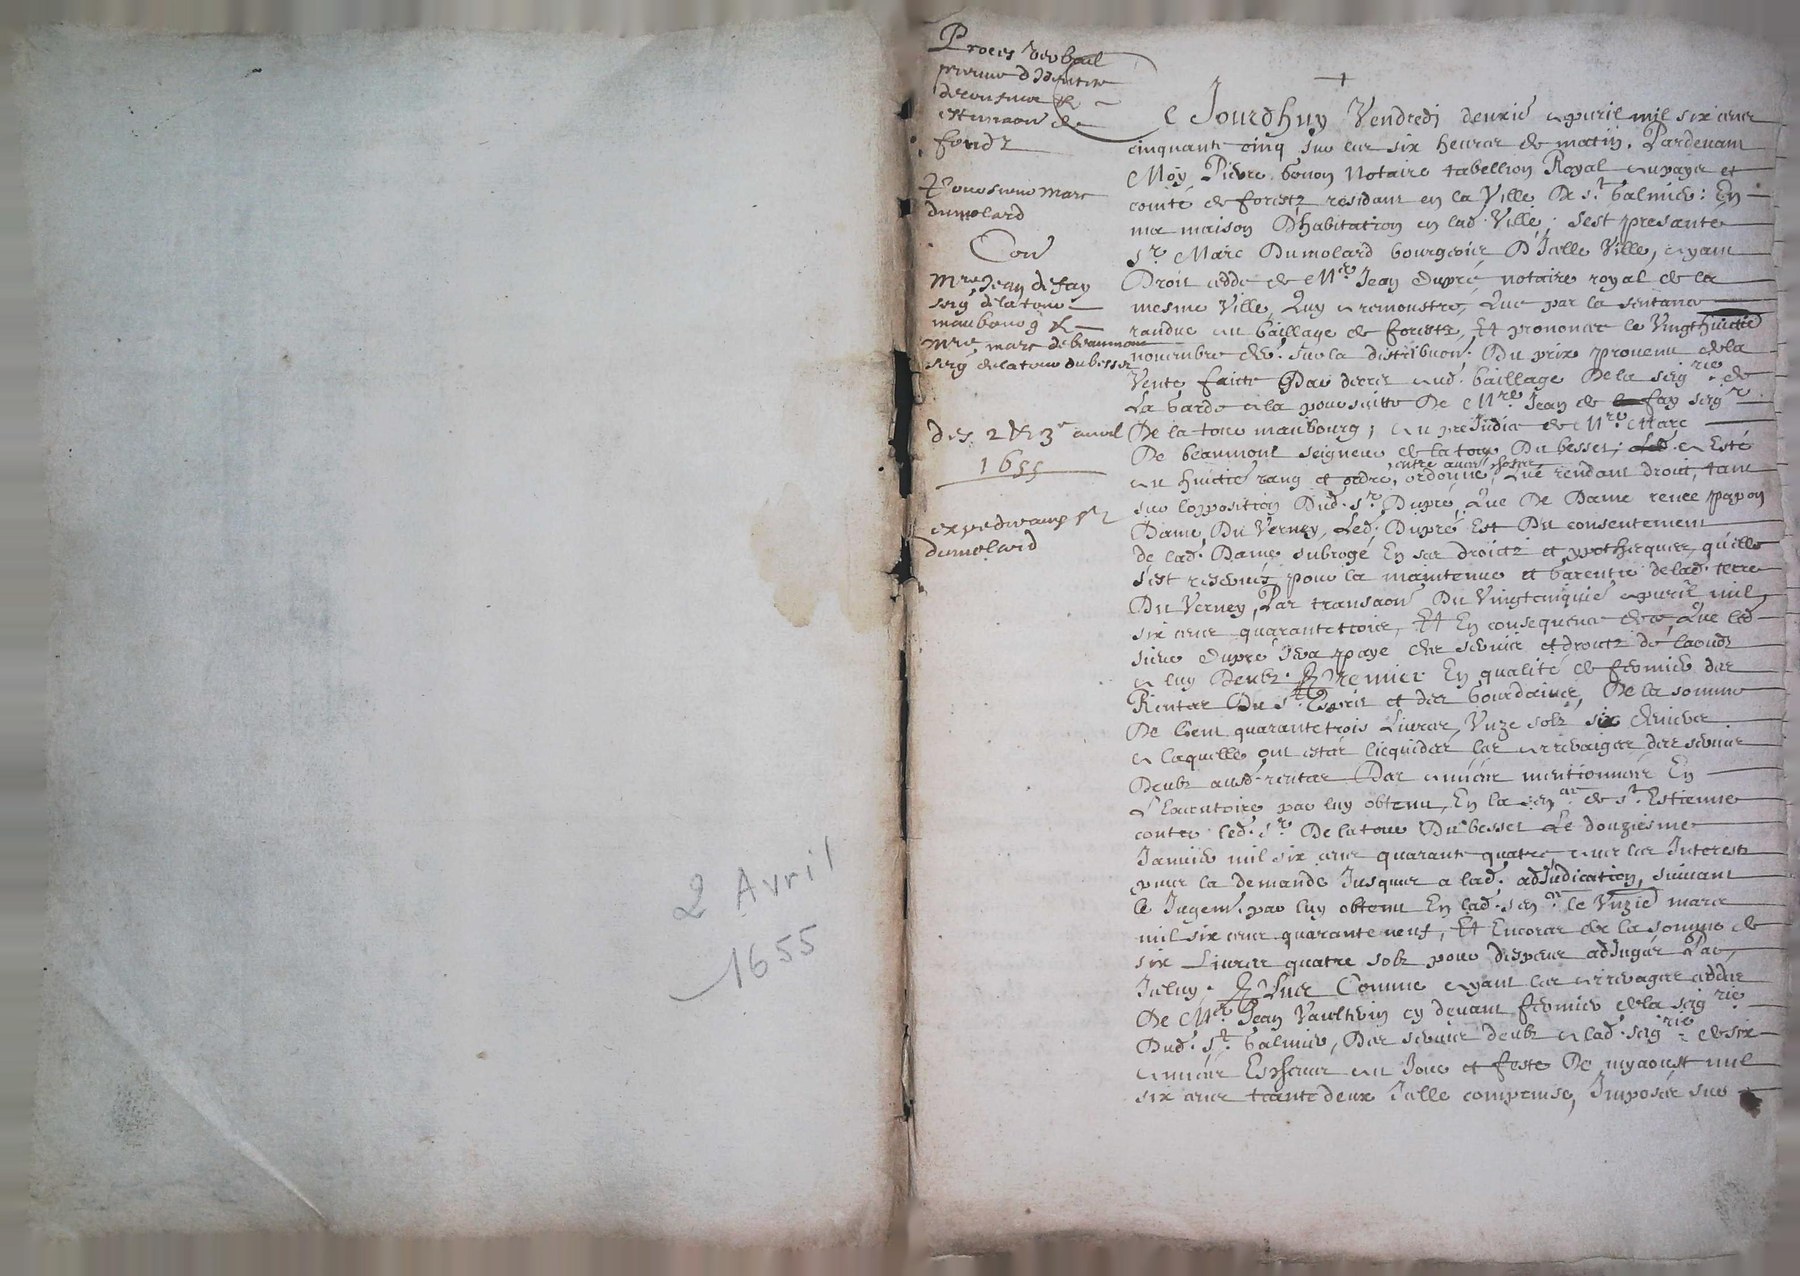 2 Avril
1655
Proces verbail
de
fondz
Pour sieur Marc
dumolard
Con
Mre Jean de fay
seigr delatour
maubourg &
Mre marc de beaumont
seigr delatour dubesset
des 2 & 3e avril
1655
dumolard
Ce Jourdhuy Vendredi deuxie apvril mil six cens
cinquante cinq sur les six heures de matin. Pardevant
Moy Pierre bonon Notaire tabellion Royal au pays et
comté de forestz residant en la Ville De St galmier: En
ma maison D'habitation en lad. Ville; sest presanté
sr Marc Dumolard bourgeois D'Jcelle Ville, ayant
Droit cedde de Mre Jean Dupré notaire royal de la
mesme Ville, Quy a remonstré, Que par la sentance
randue au bailliage de forestz, Et prononcée le Vingthuictie
novembre der. sur la distribuon. Du prix provenu de la
Vente faicte Par decret aud. bailliage De la seigrie de
La garde a la poursuitte De Mre Jean de fay seigr
De la tour maubourg; au prejudice de Mre Marc
De beaumont seigneur de la tour Du besset, a Esté
au huictie rang et ordre, ordonné, entre autre Que rendant droict, tant
sur l'opposition Dud. sr Dupré, Que De Dame renée papon
Dame Du Verney, Led. Dupré Est Du consentement
de lad. Dame subrogé En ses droictz et ypotheques, qu'elle
s'est reservés pour la maintenue et garentie de lad. terre
Du Verney, Par transaon Du Vingtcinquie apvril mil
six cens quarantetrois, Et En consequence de ce, Que led.
sieur Dupré sera payé des servis et droictz de laoudz
a luy Deubz. Premier En qualité de fermier des
Rentes Du St Esprit et des bourdaines, De la somme
De Cent quarantetrois Livres, Unze solz six deniers
a laquelle ont estés licquidés les arreraiges des servis
Deubz ausd. rentes Des années mentionnées En
L'Executoire par luy obtenu, En la sen.ée de St Estienne
contre led. sr De la tour Du besset Le douziesme
Janvier mil six cens quarante quatre, avec les Interestz
puis la demande Jusques a lad. adJudication, suivant
le Jugemt par luy obtenu En lad. sen.ée le Unzie mars
mil six cens quarante neuf, Et Encores de la somme de
six Livres quatre solz pour despens adJugés Par
Jceluy. Plus Comme ayant les arrerages ceddés
De Mre Jean Vaultrin cy devant fermier de la seigrie
Dud. St galmier, Des servis deubz a lad. seigrie de six
années Escheues au Jour et feste De myaoust mil
six cens trante deux Jcelle comprinse, Jmposés sur